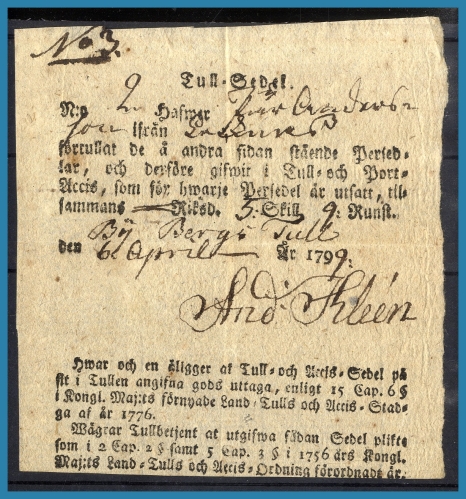 No 3.
Tull-Sedel.
N:o 2 Hafwer Pär Anders-
son ifrån
förtullat de å andra sidan stående Persed-
lar, och derföre gifwit i Tull- och Port-
Accis, som för hwarje Persedel är utsatt, til-
sammans — Riksd. 5. Skill. 9: Runst.
By Bergs Tull
den 6 April År 1799.
And. Kleén
Hwar och en åligger at Tull- och Accis-Sedel på
sit i Tullen angifna gods uttaga, enligt 15 Cap. 6 §
i Kongl. Maj:ts förnyade Land-Tulls och Accis-Stad-
ga af år 1776.
Wägrar Tullbetjent at utgifwa sådan Sedel plikte
som i 2 Cap. 2 § samt 5 Cap. 3 § i 1756 års Kongl.
Maj:ts Land-Tulls och Accis-Ordning förordnadt är.